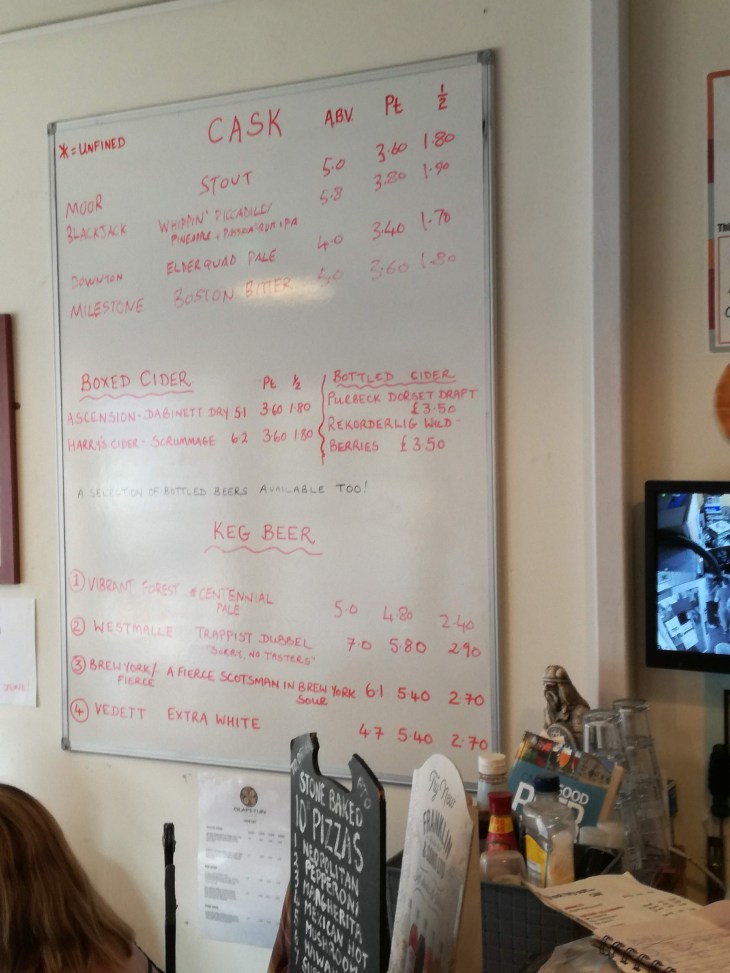 * = UNFINED
CASK ABV Pt ½
MOOR STOUT 5.0 3.60 1.80
BLACKJACK WHIPPIN' PICCADILLY 5.8 3.80 1.90
PINEAPPLE + PASSION FRUIT IPA
DOWNTON ELDERQUAD PALE 4.0 3.40 1.70
MILESTONE BOSTON BITTER 5.0 3.60 1.80
BOXED CIDER Pt ½
ASCENSION - DABINETT DRY 5.1 3.60 1.80
HARRY'S CIDER - SCRUMMAGE 6.2 3.60 1.80
BOTTLED CIDER
PURBECK DORSET DRAFT
£3.50
REKORDERLIG WILD
BERRIES £3.50
A SELECTION OF BOTTLED BEERS AVAILABLE TOO!
KEG BEER
1 VIBRANT FOREST * CENTENNIAL
PALE 5.0 4.80 2.40
2 WESTMALLE TRAPPIST DUBBEL 7.0 5.80 2.90
"SORRY, NO TASTERS"
3 BREW YORK/ A FIERCE SCOTSMAN IN BREW YORK 6.1 5.40 2.70
FIERCE SOUR
4 VEDETT EXTRA WHITE 4.7 5.40 2.70
STONE BAKED
10" PIZZAS
NEOPOLITAN
PEPPERONI
MARGHERITA
MEXICAN HOT
MUSHROOM
Try Now
FRANKLIN
& SONS LTD
GOOD